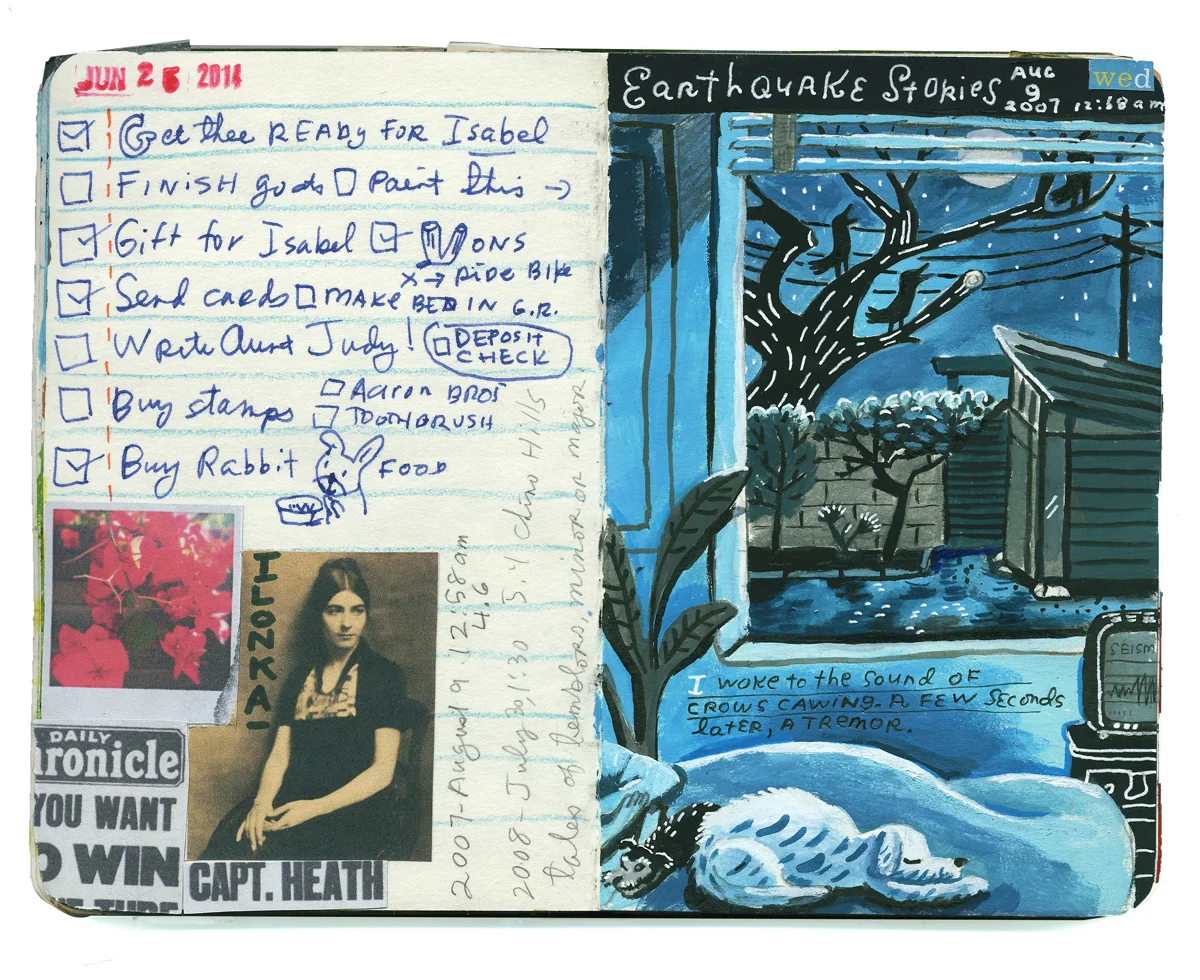 JUN 25 2014
Get thee READY FOR Isabel
FINISH gods Paint this →
Gift for Isabel ONS
x → RIDE BIKE
Send cards MAKE BED IN G.R.
Write Aunt Judy! DEPOSIT CHECK
Buy stamps Aaron BROS
TOOTHBRUSH
Buy Rabbit FOOD
ILONKA!
DAILY
hronicle
YOU WANT
O WIN
CAPT. HEATH
2007-August 9 12:58am
4.6
2008-July 29, 1:30 5.4 Chino Hills
tales of temblors, minor or major
EarthQUAKE Stories AUG 9 2007 12:58am
wed
SEISM
I woke to the sound OF
CROWS CAWING. A FEW Seconds
later, A Tremor.